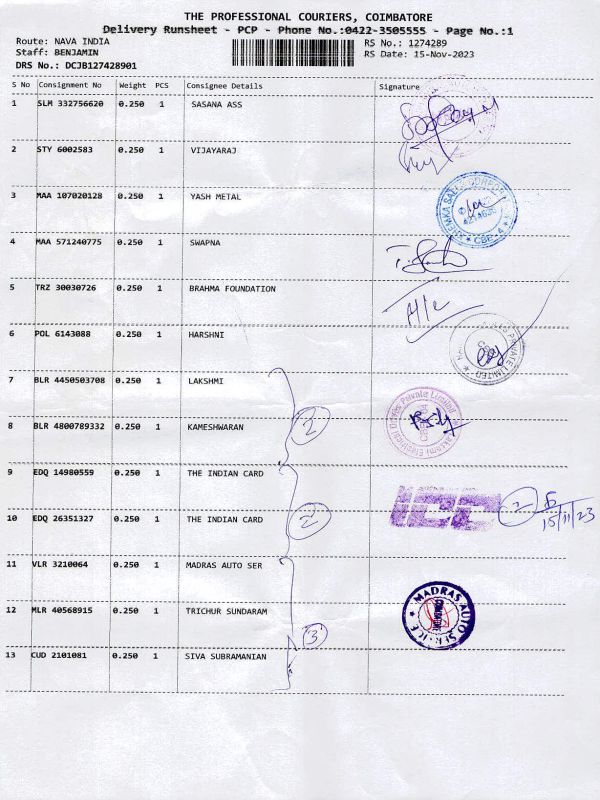 THE PROFESSIONAL COURIERS, COIMBATORE
Delivery Runsheet - PCP - Phone No.:0422-3505555 - Page No.:1
Route: NAVA INDIA
RS No.: 1274289
Staff: BENJAMIN
RS Date: 15-Nov-2023
DRS No.: DCJB127428901
S No Consignment No Weight PCS Consignee Details Signature
1 SLM 332756620 0.250 1 SASANA ASS
2 STY 6002583 0.250 1 VIJAYARAJ
3 MAA 107020128 0.250 1 YASH METAL
4 MAA 571240775 0.250 1 SWAPNA
5 TRZ 30030726 0.250 1 BRAHMA FOUNDATION
6 POL 6143088 0.250 1 HARSHNI
7 BLR 4450503708 0.250 1 LAKSHMI
8 BLR 4800789332 0.250 1 KAMESHWARAN
2
9 EDQ 14980559 0.250 1 THE INDIAN CARD
10 EDQ 26351327 0.250 1 THE INDIAN CARD
2
ICC
15/11/23
11 VLR 3210064 0.250 1 MADRAS AUTO SER
12 MLR 40568915 0.250 1 TRICHUR SUNDARAM
3
MADRAS AUTO SER
13 CUD 2101081 0.250 1 SIVA SUBRAMANIAN